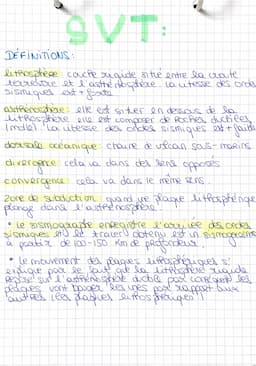 SVT:
DÉFINITIONS:
lithosphère: couche rigide situé entre la croute
terrestre et l'asthénosphère. La vitesse des ondes
sismiques est + forte
asthénosphère: elle est situer en dessous de la
lithosphère elle est composer de Roches ductiles
(molle). La vitesse des ondes sismiques est + faible
dorsale océanique: chaine de volcan sous-marins
divergence: cela va dans des sens opposés
convergence: cela va dans le même sens.
Zone de subduction: quand une plaque lithosphérique
plonge dans l'asthénosphère.
• Le sismographe enregistre l'arrivée des ondes
sismiques et le tracer obtenu est un sismogramme
à partir de 100-150 Km de profondeur.
• Le mouvement des plaques lithosphériques s'
explique par le fait que la lithosphère rigide
repose sur l'asthénosphère ductile par conséquent les
plaques vont bouger les unes par rapport aux
autres (les plaques lithosphériques)!